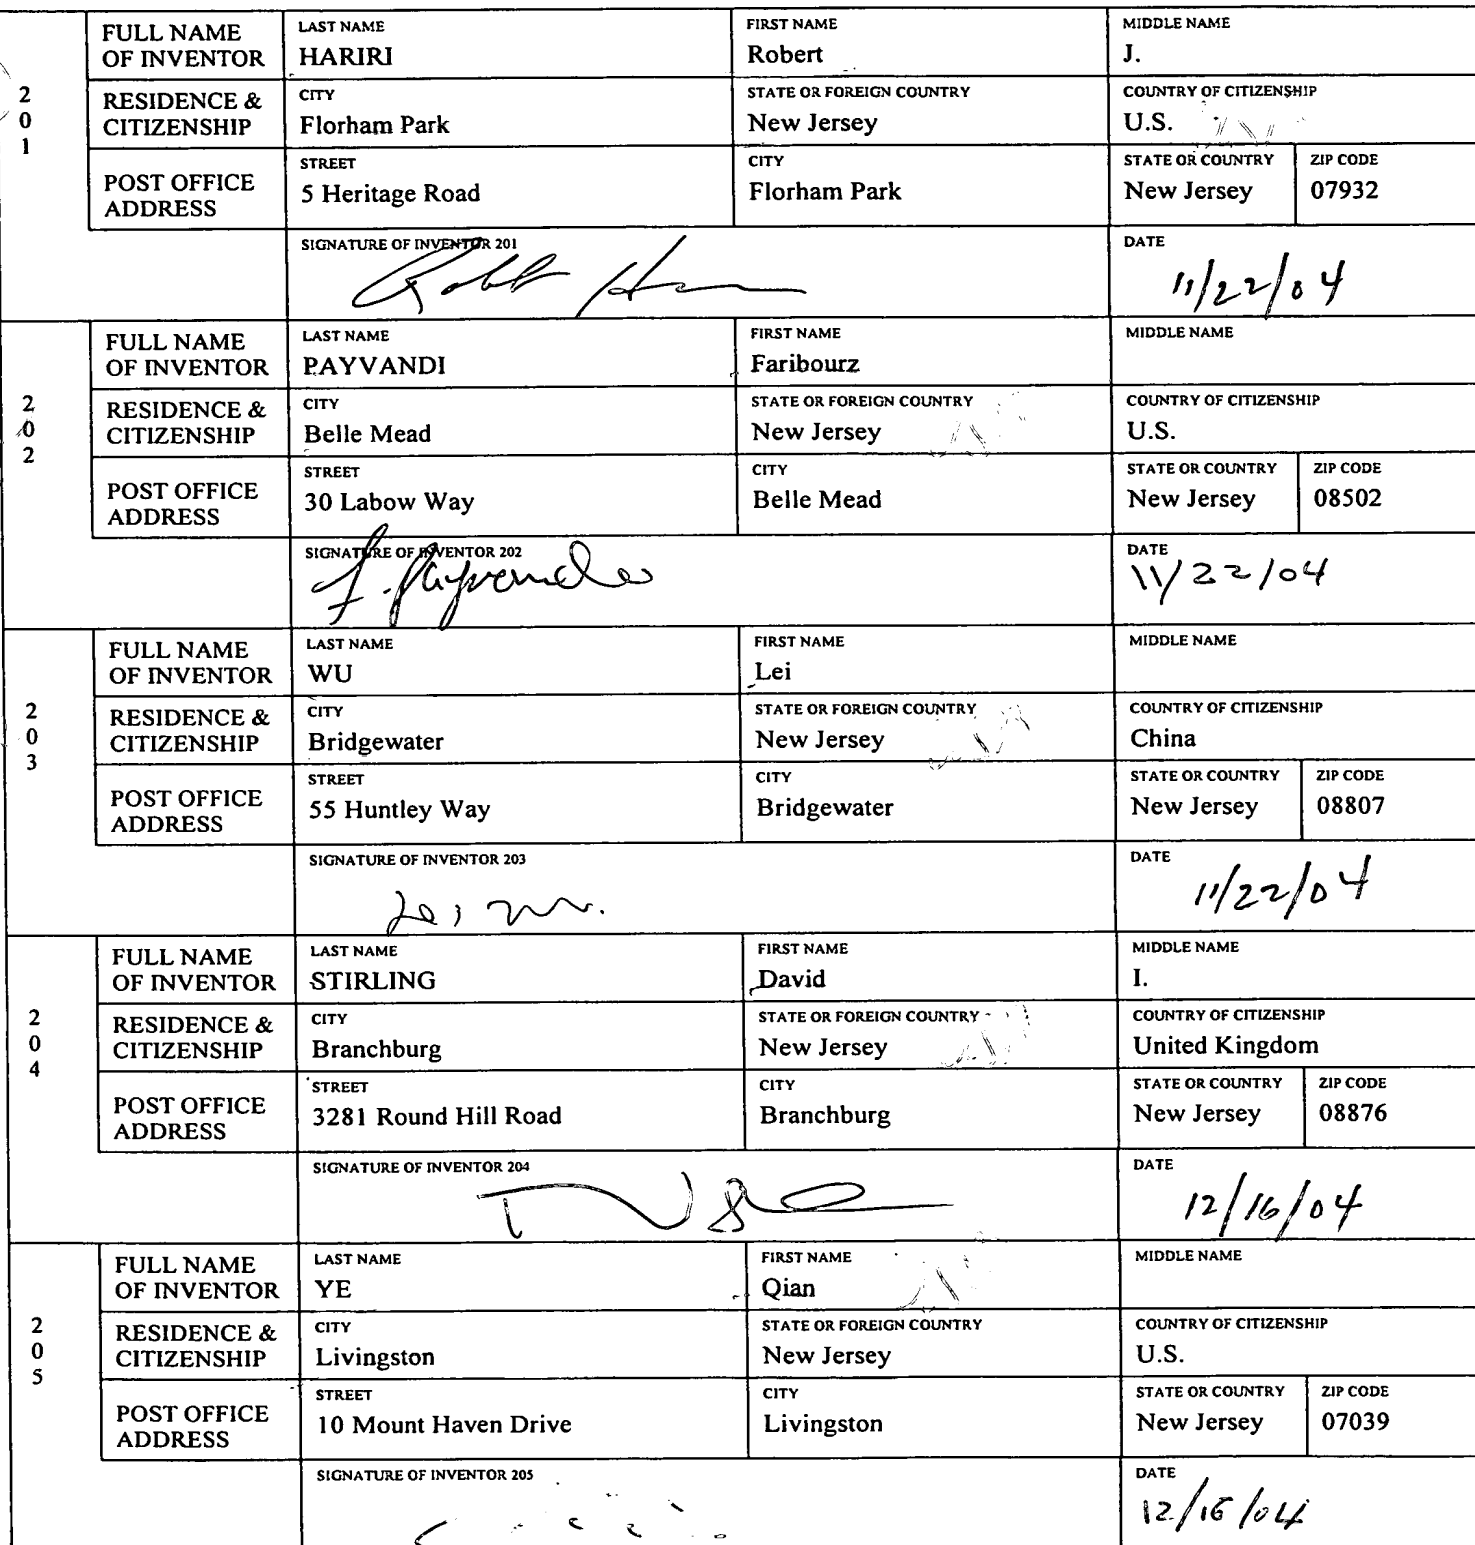 FULL NAME OF INVENTOR
LAST NAME
HARIRI
FIRST NAME
Robert
MIDDLE NAME
J.
201
RESIDENCE & CITIZENSHIP
CITY
Florham Park
STATE OR FOREIGN COUNTRY
New Jersey
COUNTRY OF CITIZENSHIP
U.S.
POST OFFICE ADDRESS
STREET
5 Heritage Road
CITY
Florham Park
STATE OR COUNTRY
New Jersey
ZIP CODE
07932
SIGNATURE OF INVENTOR 201
DATE
11/22/04
FULL NAME OF INVENTOR
LAST NAME
PAYVANDI
FIRST NAME
Faribourz
MIDDLE NAME
202
RESIDENCE & CITIZENSHIP
CITY
Belle Mead
STATE OR FOREIGN COUNTRY
New Jersey
COUNTRY OF CITIZENSHIP
U.S.
POST OFFICE ADDRESS
STREET
30 Labow Way
CITY
Belle Mead
STATE OR COUNTRY
New Jersey
ZIP CODE
08502
SIGNATURE OF INVENTOR 202
F. Payvandi
DATE
11/22/04
FULL NAME OF INVENTOR
LAST NAME
WU
FIRST NAME
Lei
MIDDLE NAME
203
RESIDENCE & CITIZENSHIP
CITY
Bridgewater
STATE OR FOREIGN COUNTRY
New Jersey
COUNTRY OF CITIZENSHIP
China
POST OFFICE ADDRESS
STREET
55 Huntley Way
CITY
Bridgewater
STATE OR COUNTRY
New Jersey
ZIP CODE
08807
SIGNATURE OF INVENTOR 203
Lei Wu.
DATE
11/22/04
FULL NAME OF INVENTOR
LAST NAME
STIRLING
FIRST NAME
David
MIDDLE NAME
I.
204
RESIDENCE & CITIZENSHIP
CITY
Branchburg
STATE OR FOREIGN COUNTRY
New Jersey
COUNTRY OF CITIZENSHIP
United Kingdom
POST OFFICE ADDRESS
STREET
3281 Round Hill Road
CITY
Branchburg
STATE OR COUNTRY
New Jersey
ZIP CODE
08876
SIGNATURE OF INVENTOR 204
DATE
12/16/04
FULL NAME OF INVENTOR
LAST NAME
YE
FIRST NAME
Qian
MIDDLE NAME
205
RESIDENCE & CITIZENSHIP
CITY
Livingston
STATE OR FOREIGN COUNTRY
New Jersey
COUNTRY OF CITIZENSHIP
U.S.
POST OFFICE ADDRESS
STREET
10 Mount Haven Drive
CITY
Livingston
STATE OR COUNTRY
New Jersey
ZIP CODE
07039
SIGNATURE OF INVENTOR 205
DATE
12/16/04